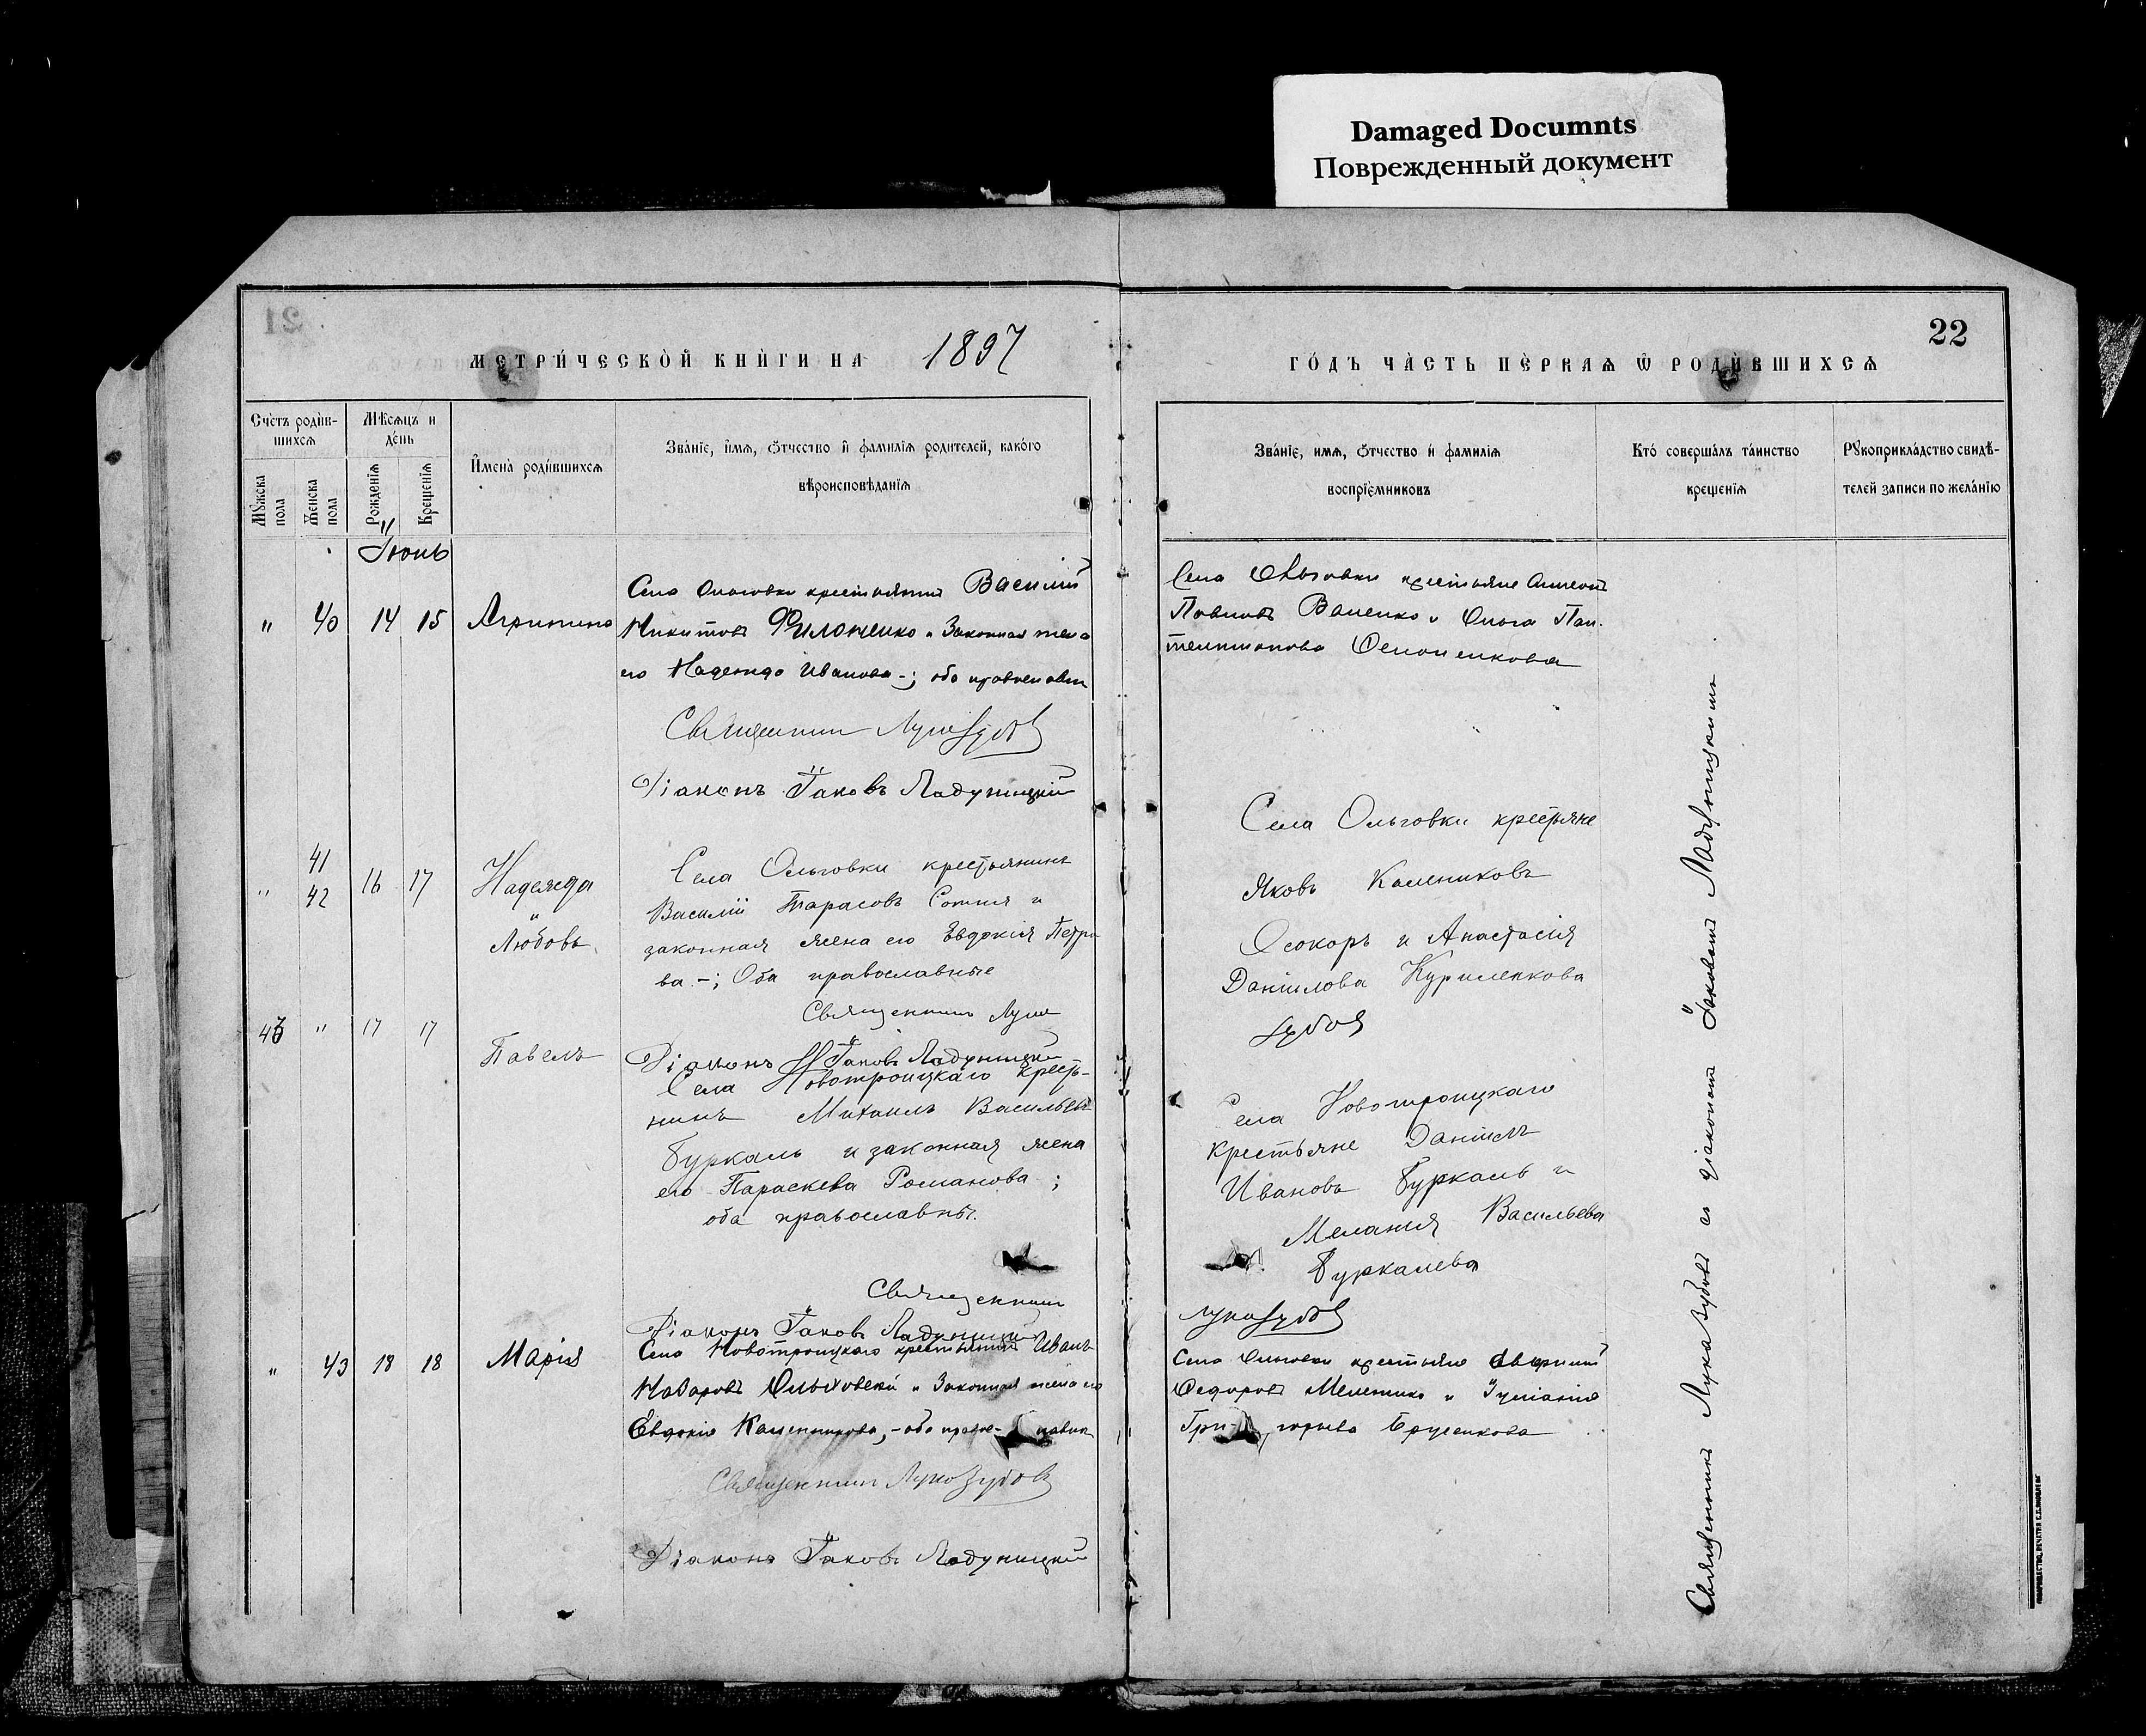 Damaged Documnts
Поврежденный документ
21
22
МЕТРИ́ЧЕСКОЙ КНИ́ГИ НА 1897
ГО́ДЪ ЧА́СТЬ ПЕ́РВАѦ Ѡ РОДИ́ВШИХСѦ
Сче́тъ роди́в-
шихсѧ
Мꙋ́жска пола
Же́нска пола
Мѣ́сѧцъ и
де́нь
Рожденїѧ
Крещенїѧ
И҆мена̀ роди́вшихсѧ
Зва́нїе, и҆́мѧ, ѻ҆́тчество и҆ фамилїѧ родителей, како́го
вѣроисповѣданїѧ
Зва́нїе, имѧ, ѻ҆́тчество и҆ фамилїѧ
воспрїе́мниковъ
Кто̀ соверша́лъ та́инство
крещенїѧ
Рꙋкоприкла́дство свидѣ́-
телей записи по жела́нїю
Іюнь
" 40 14 15 Агрипина
Села Ольговки крестьянинъ Василій
Никитовъ Филоненко и Законная жена
его Надежда Иванова -; оба православн
Священникъ Лука Зубовъ
Діаконъ Іаковъ Ладуницкій
Села Ольговки крестьяне
Павловъ Ваненко и Ольга Пан-
телимонова
41
" 42 16 17 Надежда
и
Любовь
Села Ольговки крестьянинъ
Василій Тарасовъ Сотня и
законная жена его Евдокія Петро
ва -; Оба православные
Священникъ Лука
Діаконъ Іаковъ Ладуницкій
Села Ольговки крестьяне
Яковъ Калениковъ
Осокоръ и Анастасія
Даніилова Куриленкова
Зубовъ
43 " 17 17 Павелъ
Села Новотроицкаго кресть-
нинъ Михаилъ Васильевъ
Буркаль и законная жена
его Параскева Романова ;
оба православны.
Священникъ
Діаконъ Іаковъ Ладуницкій
Села Новотроицкаго
крестьяне Даніилъ
Ивановъ Буркаль и
Меланія Васильева
Буркалева
Лука Зубовъ
" 43 18 18 Марія
Села Новотроицкаго крестьянинъ Иванъ
Назаровъ Ольховскій и Законная жена его
Евдокія Каленникова, - оба право- лавн
Священникъ Лука Зубовъ
Діаконъ Іаковъ Ладуницкій
Села Ольговки крестьяне
Федоровъ и Іуліанія
Гри- горьева
Священникъ Лука Зубовъ съ діакономъ Іаковомъ Ладуницкимъ